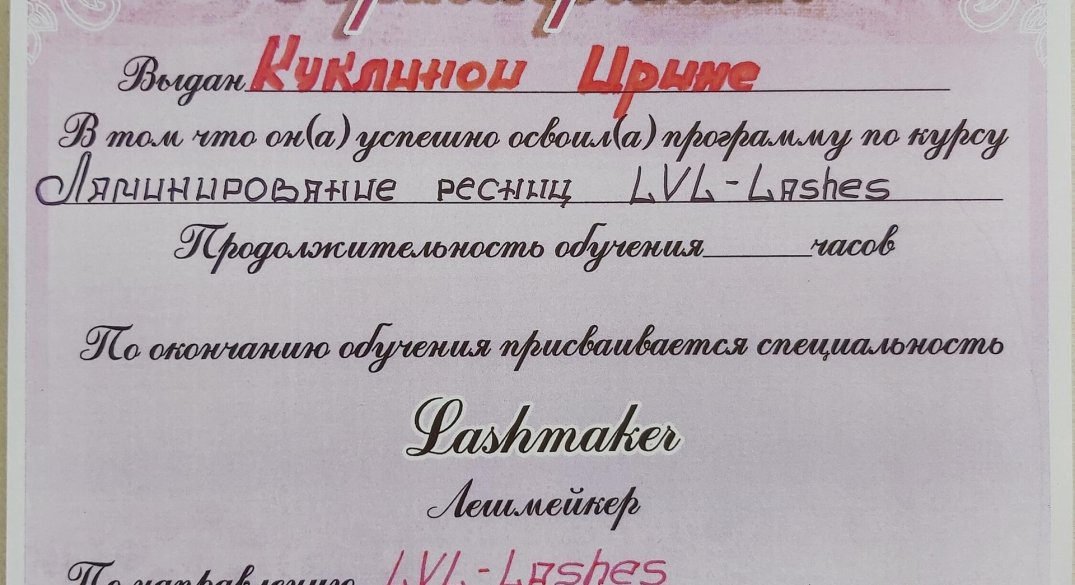 Выдан Куклиной Ирине
В том что он(а) успешно освоил(а) программу по курсу
Ламинирование ресниц LVL-Lashes
Продолжительность обучения______часов
По окончанию обучения присваивается специальность
Lashmaker
Лешмейкер
По направлению LVL-Lashes